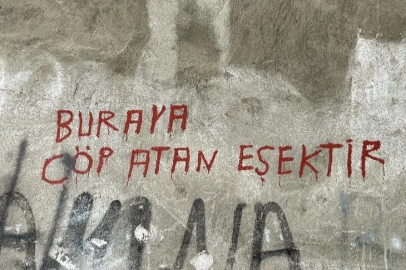 BURAYA
ÇÖP ATAN EŞEKTİR